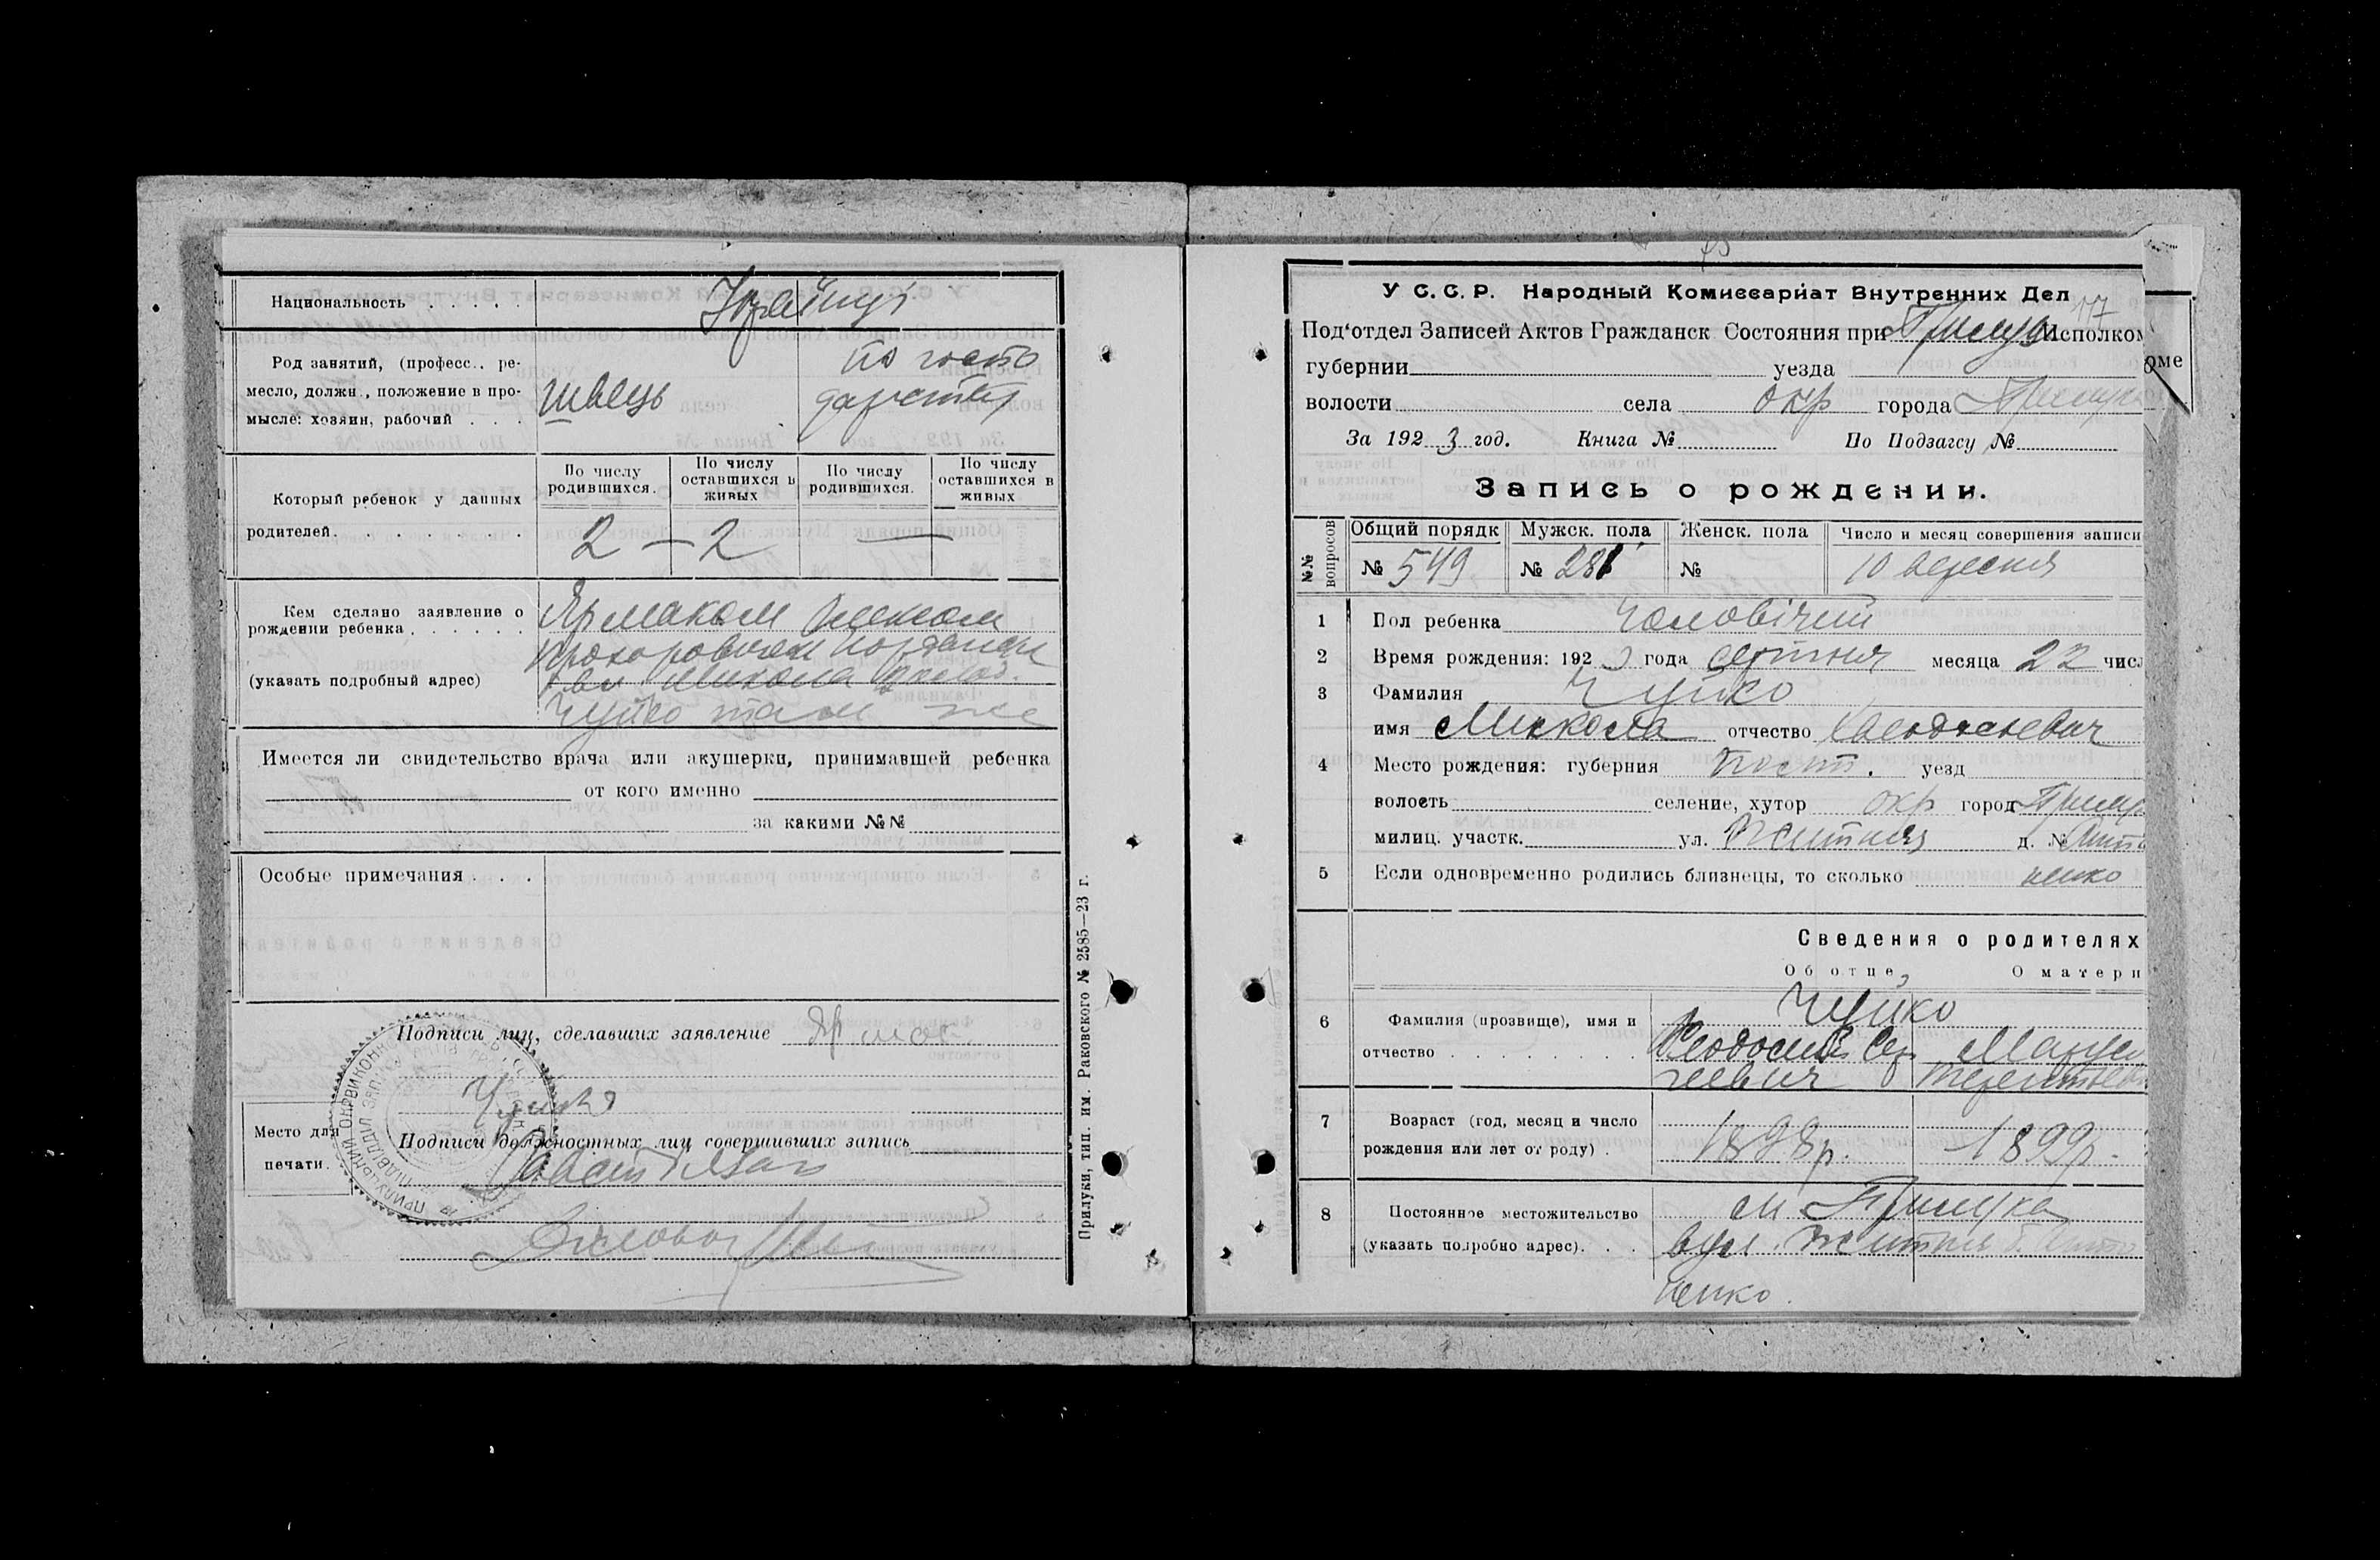 Национальность . . . . Українці
Род занятий, (професс., ре-
месло, должн., положение в про-
мысле: хозяин, рабочий . . .
швець
по госпо
дарству
Который ребенок у данных
родителей. . . . . . . .
По числу родившихся.
По числу оставшихся в живых
По числу родившихся.
По числу оставшихся в живых
2 — 2 —
Кем сделано заявление о
рождении ребенка . . . . . .
(указать подробный адрес)
Ярмаком
Прохоровичем
Микола
Чуйко там же
Имеется ли свидетельство врача или акушерки, принимавшей ребенка
от кого именно
за какими №№
Особые примечания . . .
Подписи лиц, сделавших заявление Ярмак
Чуйко
Место для
печати.
Подписи должностных лиц совершивших запись
Діловод
Прилуки, тип. им. Раковского № 2585—23 г.
75
У С. С. Р. Народный Комиссариат Внутренних Дел
117
Под'отдел Записей Актов Гражданск Состояния при Прилуц Исполком
оме
губернии уезда
волости села окр города Прилука
За 1923 год. Книга № По Подзагсу №
Запись о рождении.
№№ вопросов
Общий порядк Мужск. пола Женск. пола Число и месяц совершения записи
№ 549 № 281 № 10 вересня
1 Пол ребенка Чоловічий
2 Время рождения: 1923 года серпня месяца 22 числ
3 Фамилия Чуйко
имя Микола отчество
4 Место рождения: губерния Полт. уезд
волость селение, хутор окр город Прилук
милиц. участк. ул. Житная д. №
5 Если одновременно родились близнецы, то сколько ненко
Сведения о родителях
Об отце, О матери
6 Фамилия (прозвище), имя и
отчество . . . . . . . .
Чуйко
Феодосий Сер
геевич
7 Возраст (год, месяц и число
рождения или лет от роду) .
1898р. 1899р.
8 Постоянное местожительство
(указать подробно адрес). . .
м. Прилука
вул. Житная б.
ненко.